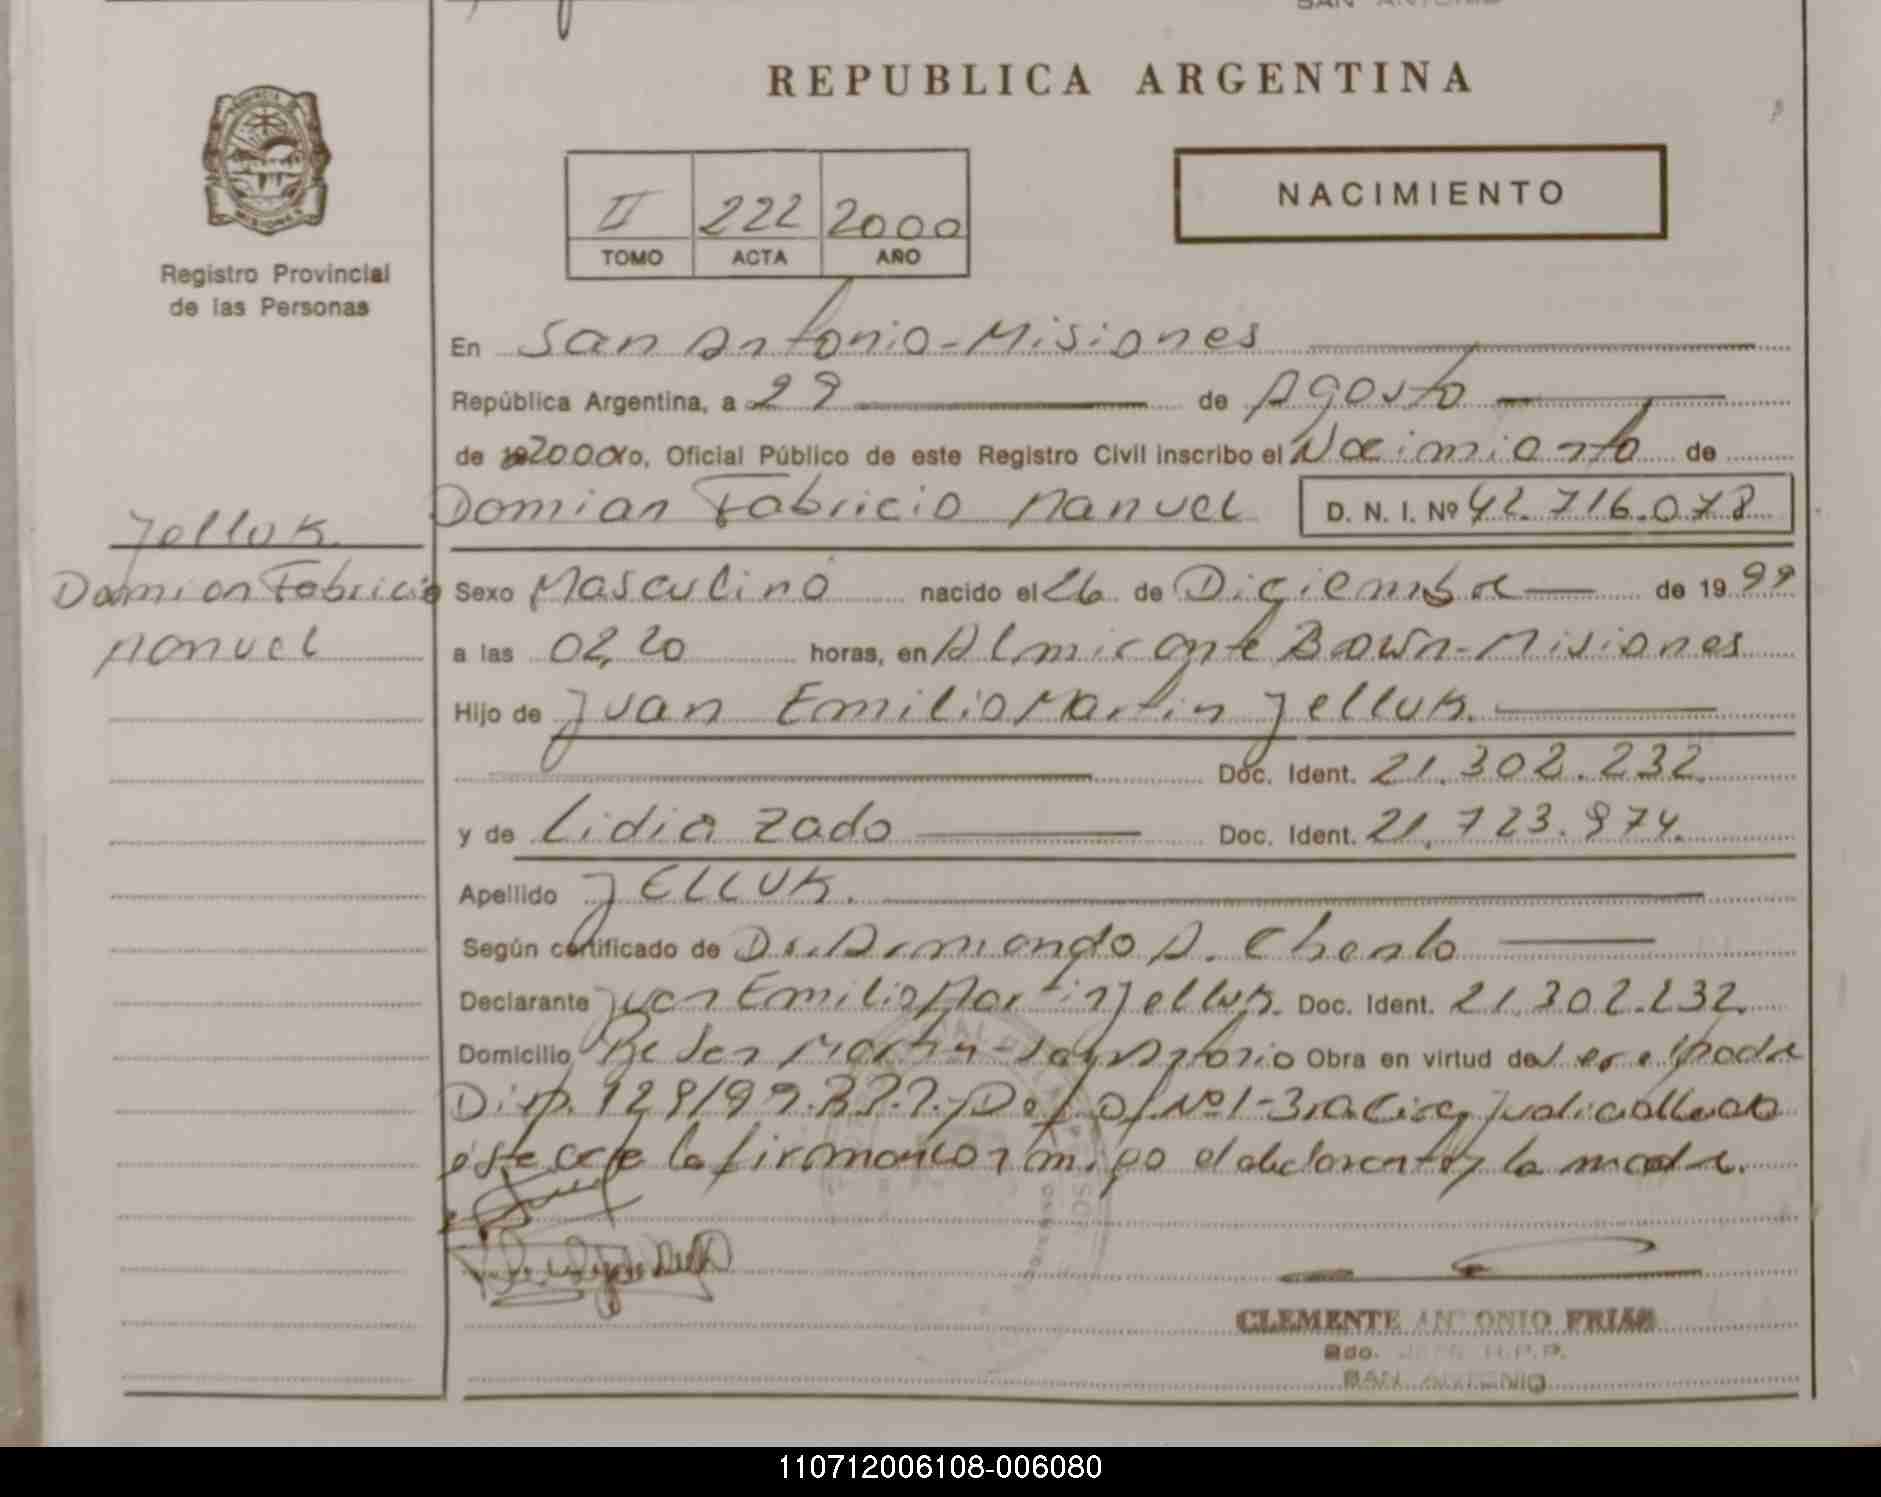 REPUBLICA ARGENTINA
Registro Provincial
de las Personas
II 222 2000
TOMO ACTA AÑO
NACIMIENTO
En San Antonio-Misiones
República Argentina, a 29 de Agosto
de 2000 yo, Oficial Público de este Registro Civil inscribo el Nacimiento de
Domian Fabricio Manuel D. N. I. Nº 42.716.078
Jelluk
Domian Fabricio
Manuel
Sexo Masculino nacido el 26 de Diciembre de 1999
a las 02,20 horas, en Almirante Bown-Misiones
Hijo de Juan Emilio Martin Jelluk.
Doc. Ident. 21.302.232.
y de Lidia Zado Doc. Ident. 21.723.974.
Apellido JELLUK.
Según certificado de Dr. Armando A.
Declarante Juan Emilio Martin Jelluk. Doc. Ident. 21.302.232.
Domicilio Martin-San Antonio Obra en virtud de
Disp. 129/99. Nº1-3ra Circ. Judicial
este acta la firman conmigo el declarante y la madre.
CLEMENTE ANTONIO FRIAS
SAN ANTONIO
110712006108-006080